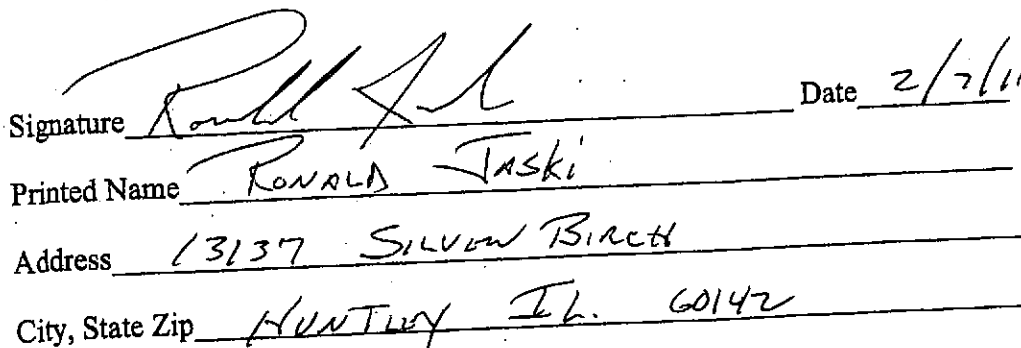 Signature Ronald Jaski Date 2/7/11
Printed Name RONALD JASKI
Address 13137 SILVER BIRCH
City, State Zip HUNTLEY IL. 60142